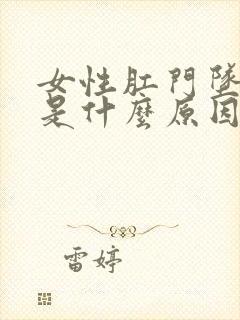 女性肛門墜
是什麼原因
雷婷